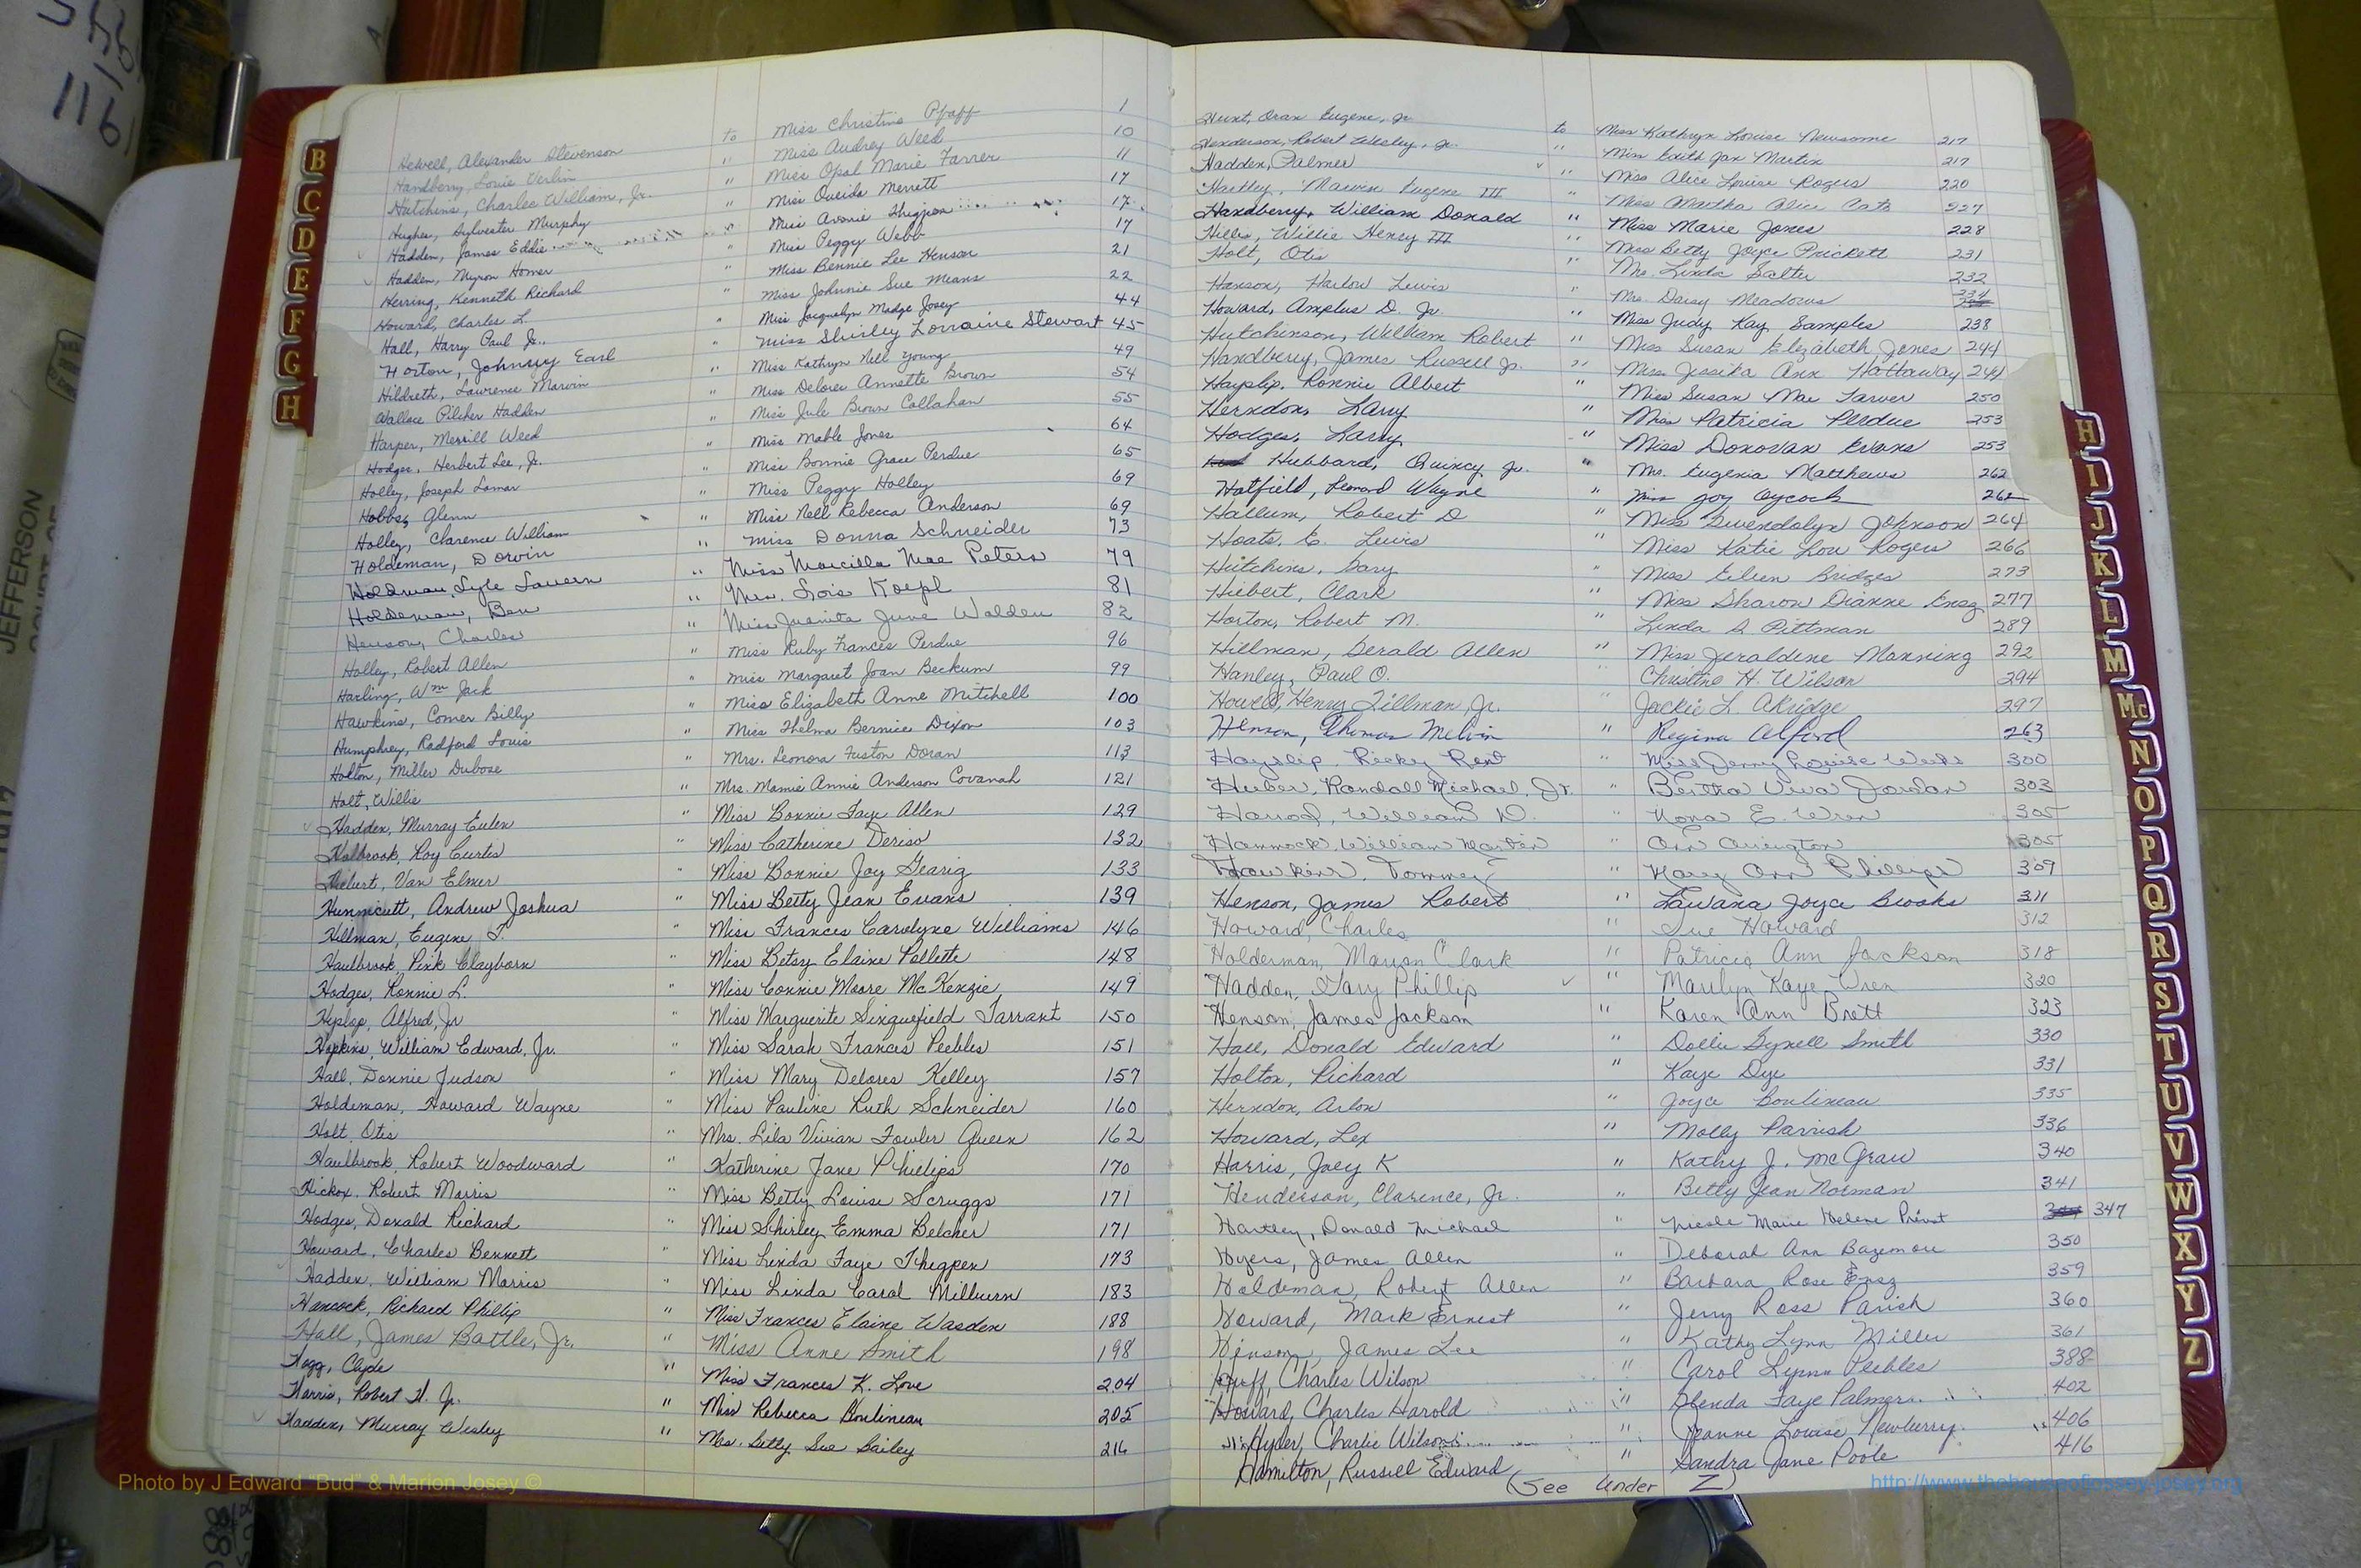 Hewell, Alexander Stevenson to Miss Christine Pfaff 1
Handberry, Louie Verlin " Miss Audrey Weed 10
Hutchins, Charles William, Jr. " Miss Opal Marie Farrer 11
Hughes, Sylvester Murphy " Miss Oneida Merrett 17
Hadden, James Eddie " Miss Avonie Thigpen 17
Hadden, Myron Homer " Miss Peggy Webb 17
Herring, Kenneth Richard " Miss Bennie Lee Henson 21
Howard, Charles L. " Miss Johnnie Sue Means 22
Hall, Harry Paul Jr. " Miss Jacquelyn Madge Josey 44
Horton, Johnny Earl " Miss Shirley Lorraine Stewart 45
Hildreth, Lawrence Marvin " Miss Kathryn Nell Young 49
Wallace Pilcher Hadden " Miss Delores Annette Brown 54
Harper, Merrill Weed " Miss Jule Brown Callahan 55
Hodges, Herbert Lee, Jr. " Miss Mable Jones 64
Holley, Joseph Lamar " Miss Bonnie Grace Perdue 65
Hobbs, Glenn " Miss Peggy Holley 69
Holley, Clarence William " Miss Nell Rebecca Anderson 69
Holdeman, Dorwin " Miss Donna Schneider 73
Holdeman, Lyle Lavern " Miss Marcilla Mae Peters 79
Holdeman, Ben " Mrs. Lois Koepl 81
Henson, Charles " Miss Juanita June Walden 82
Holley, Robert Allen " Miss Ruby Frances Perdue 96
Harling, Wm Jack " Miss Margaret Joan Beckum 99
Hawkins, Comer Billy " Miss Elizabeth Anne Mitchell 100
Humphrey, Radford Louis " Miss Thelma Bernice Dixon 103
Holton, Miller Dubose " Mrs. Leonora Fuston Doran 113
Holt, Willie " Mrs. Mamie Annie Anderson Covanah 121
Hadden, Murray Eulen " Miss Bonnie Faye Allen 129
Holbrook, Roy Curtis " Miss Catherine Deriso 132
Hiebert, Van Elmer " Miss Bonnie Joy Gearig 133
Hunnicutt, Andrew Joshua " Miss Betty Jean Evans 139
Hillman, Eugene T. " Miss Frances Carolyne Williams 146
Haulbrook, Pink Clayborn " Miss Betsy Elaine Pollette 148
Hodges, Ronnie L. " Miss Connie Moore McKenzie 149
Hyslop, Alfred, Jr " Miss Marguerite Sinquefield Tarrant 150
Hopkins, William Edward, Jr. " Miss Sarah Frances Peebles 151
Hall, Donnie Judson " Miss Mary Delores Kelley 157
Holdeman, Howard Wayne " Miss Pauline Ruth Schneider 160
Holt, Otis " Mrs. Lila Vivian Fowler Queen 162
Haulbrook, Robert Woodward " Katherine Jane Phillips 170
Hickox, Robert Morris " Miss Betty Louise Scruggs 171
Hodges, Donald Richard " Miss Shirley Emma Belcher 171
Howard, Charles Bennett " Miss Linda Faye Thigpen 173
Hadden, William Morris " Miss Linda Carol Milburn 183
Hancock, Richard Phillip " Miss Frances Elaine Wasden 188
Hall, James Battle, Jr. " Miss Anne Smith 198
Hogg, Clyde " Miss Frances K. Love 204
Harris, Robert H. Jr. " Miss Rebecca Boulineau 205
Hadden, Murray Wesley " Mrs. Betty Sue Bailey 216
Hunt, Oran Eugene, Jr to Miss Kathryn Louise Newsome 217
Henderson, Robert Wesley, Jr. " Miss Edith Jan Martin 217
Hadden, Palmer " Miss Alice Louise Rogers 220
Hartley, Marvin Eugene III " Miss Martha Alice Cato 227
Handberry, William Donald " Miss Marie Jones 228
Hillis, Willie Henry III " Miss Betty Joyce Prickett 231
Holt, Otis " Mrs. Linda Salter 232
Hanson, Harlow Lewis " Mrs. Daisy Meadows 234
Howard, Amplus D. Jr. " Miss Judy Kay Samples 238
Hutchinson, William Robert " Miss Susan Elizabeth Jones 244
Handberry, James Russell Jr. " Miss Jessika Ann Hattaway 244
Hayslip, Ronnie Albert " Miss Susan Mae Tarver 250
Herndon, Larry " Miss Patricia Perdue 253
Hodges, Larry " Miss Donovan Evans 253
Hubbard, Quincy Jr. " Mrs. Eugenia Matthews 262
Hatfield, Leonard Wayne " Miss Joy Aycock 262
Hallum, Robert D " Miss Gwendolyn Johnson 264
Hoats, E. Lewis " Miss Katie Lou Rogers 266
Hutchins, Gary " Miss Eileen Bridges 273
Hiebert, Clark " Miss Sharon Dianne Ensz 277
Horton, Robert M. " Linda S. Pittman 289
Hillman, Gerald Allen " Miss Jeraldine Manning 292
Hanley, Paul O. " Christine H. Wilson 294
Howell, Henry Tillman, Jr. " Jackie L. Akridge 297
Henson, Thomas Melvin " Regina Alford 263
Hayslip, Rickey Kent " Miss Jenny Louise Weeks 300
Huber, Randall Michael, Jr. " Bertha Viva Jordan 303
Harrod, William D. " Nona E. Wren 305
Hammock, William Martin " Ann Arrington 305
Hawkins, Tommey " Mary Ann Phillips 309
Henson, James Robert " Lawana Joyce Brooks 311
Howard, Charles " Sue Howard 312
Holderman, Marion Clark " Patricia Ann Jackson 318
Hadden, Gary Phillip " Marilyn Kaye Wren 320
Henson, James Jackson " Karen Ann Brett 323
Hall, Donald Edward " Dollie Gynell Smith 330
Holton, Richard " Kaye Dye 331
Herndon, Arlon " Joyce Boulineau 335
Howard, Lex " Molly Parrish 336
Harris, Joey K " Kathy J. McGraw 340
Henderson, Clarence, Jr. " Betty Jean Norman 341
Hartley, Donald Michael " Nicole Marie Helene Privat 347
Hyers, James Allen " Deborah Ann Bazemore 350
Holdeman, Robert Allen " Barbara Rose Ensz 359
Howard, Mark Ernest " Jerry Ross Parish 360
Hinson, James Lee " Kathy Lynn Miller 361
Huff, Charles Wilson " Carol Lynn Peebles 388
Howard, Charles Harold " Glenda Faye Palmer 402
Hyder, Charlie Wilson " Jeanne Louise Newberry 406
Hamilton, Russell Edward " Sandra Jane Poole 416
(See Under Z)
B
C
D
E
F
G
H
H
I
J
K
L
M
Mc
N
O
P
Q
R
S
T
U
V
W
X
Y
Z
JEFFERSON
Photo by J Edward “Bud” & Marion Josey ©
http://www.thehouseofjossey-josey.org